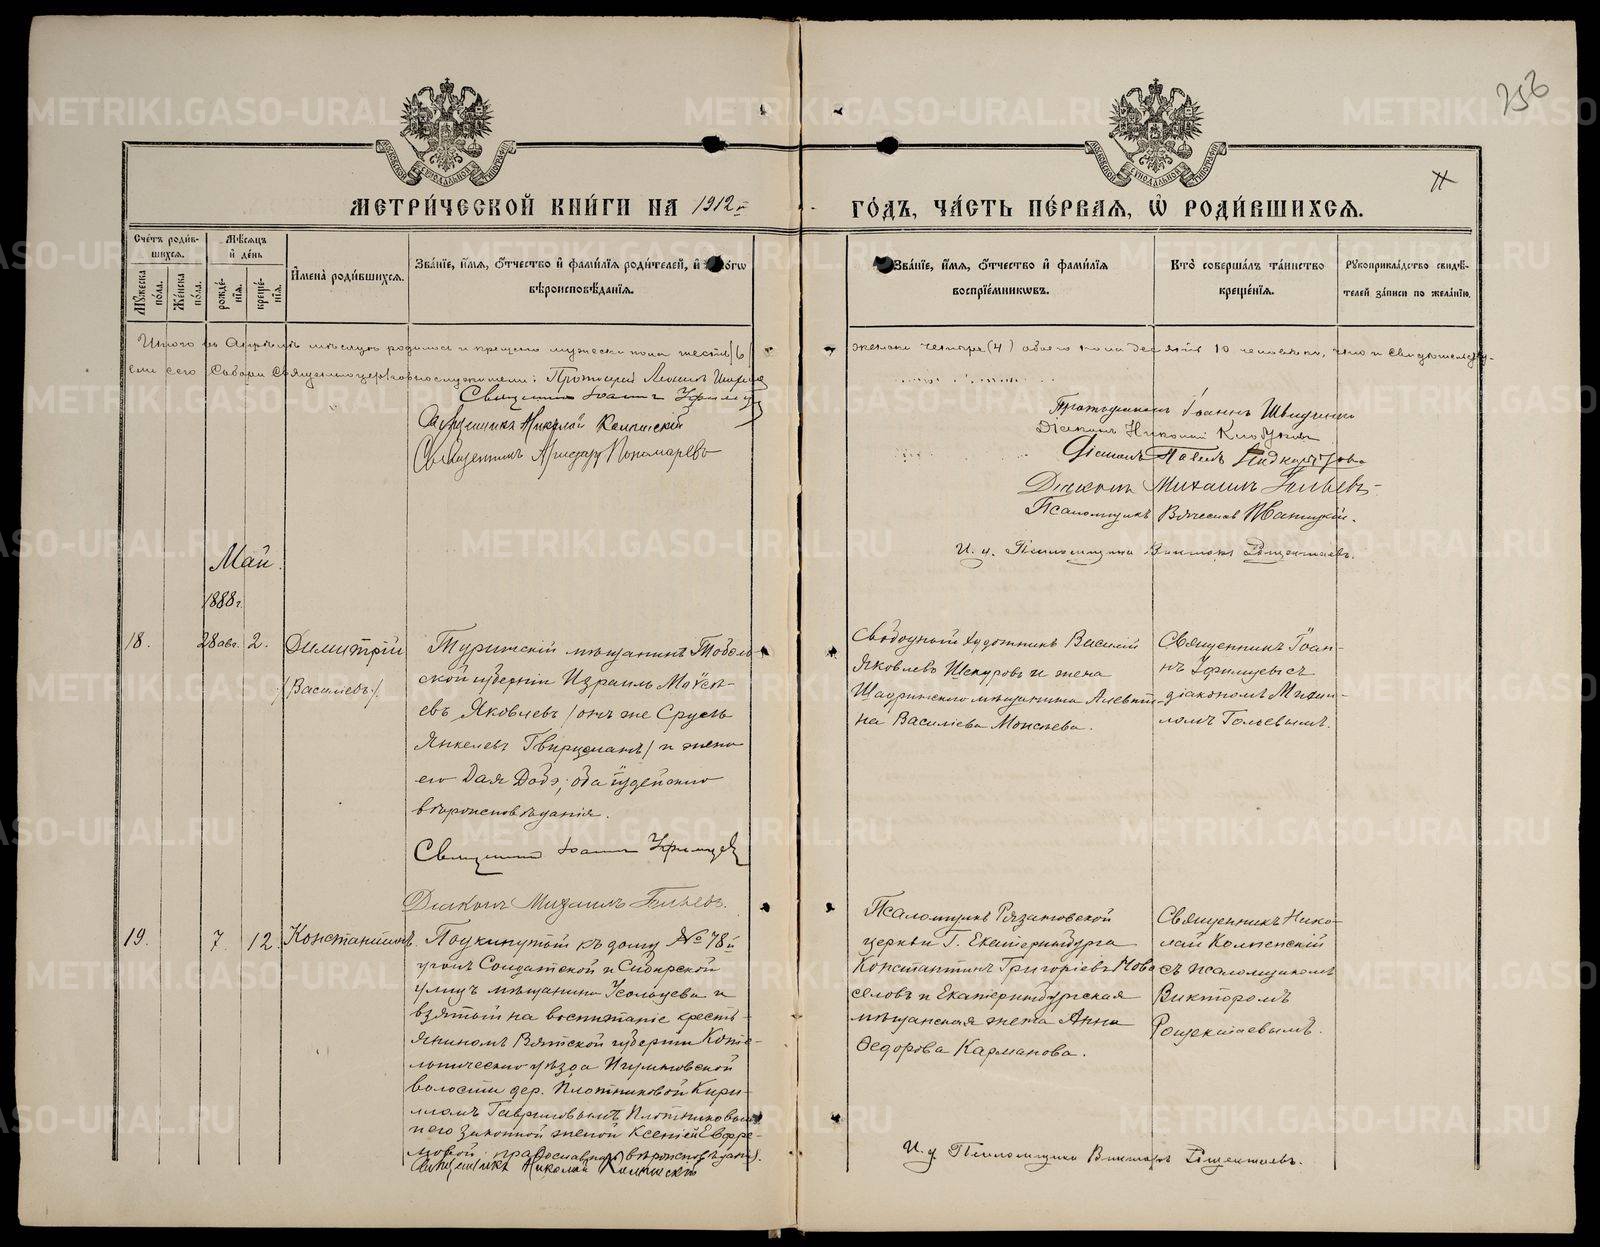 256
МЕТРИ́ЧЕСКОЙ КНИ́ГИ НА 1912 й
ГО́ДЪ, ЧА́СТЬ ПЕ́РВАЯ, Ѡ РОДИ́ВШИХСЯ.
Сче́тъ роди́вшихся.
Му́жеска по́ла.
Же́нска по́ла.
Мѣ́сяцъ и де́нь
рожде́нїя.
креще́нїя.
Имена̀ роди́вшихся.
Зва́нїе, и́мя, ѻ́тчество и фами́лїя роди́телей, и
вѣроисповѣ́данїя.
Зва́нїе, и́мя, ѻ́тчество и фами́лїя
воспрїе́мникωвъ.
Кто̀ соверша́лъ та́инство
креще́нїя.
Рукоприкла́дство свидѣ́-
телей за́писи по жела́нїю.
Итого въ Апрѣлѣ мѣсяцѣ родилось и крещено мужеска пола шесть (6)
женска четыре (4) обоего пола десять 10 человѣкъ, что и свидѣтельству-
емъ сего Собора священноцерковнослужители: Протоіерей
Священникъ Іоаннъ
Священникъ Николай
Священникъ Пономаревъ
Протодіаконъ Іоаннъ
Діаконъ Николай
Діаконъ Павелъ
Діаконъ Михаилъ
Псаломщикъ Вячеславъ
И. д. Псаломщика Викторъ
Май.
1888 г.
18.
28 авг.
2.
Димитрій
(Васильевъ)
Туринскій мѣщанинъ Тоболь-
ской губерніи Израиль Моусе-
евъ Яковлевъ (онъ же Сруль
Янкелевъ) и жена
его Дая Добэ, оба іудейскаго
вѣроисповѣданія.
Священникъ Іоаннъ
Діаконъ Михаилъ
Свободный художникъ Василій
Яковлевъ Шекуровъ и жена
Шадринскаго мѣщанина Алевти-
на Васильева Моисеева.
Священникъ Іоан-
нъ съ
діакономъ Михаи-
ломъ
19.
7.
12.
Константинъ.
Подкинутый къ дому № 78 й
уголъ Солдатской и Сибирской
улицъ мѣщанина и
взятый на воспитаніе кресть-
яниномъ Вятской губерніи Коте-
льническаго уѣзда
волости дер. Плотниковой Кири-
лломъ Гавриловымъ Плотниковымъ
и его законной женой Ксеніей Евфре-
мовой, православнаго вѣроисповѣданія.
Священникъ Николай
Псаломщикъ Рязановской
церкви г. Екатеринбурга
Константинъ Григоріевъ Ново-
селовъ и Екатеринбургская
мѣщанская жена Анна
Ѳедорова Карманова.
Священникъ Нико-
лай
съ псаломщикомъ
Викторомъ
И. д. Псаломщика Викторъ